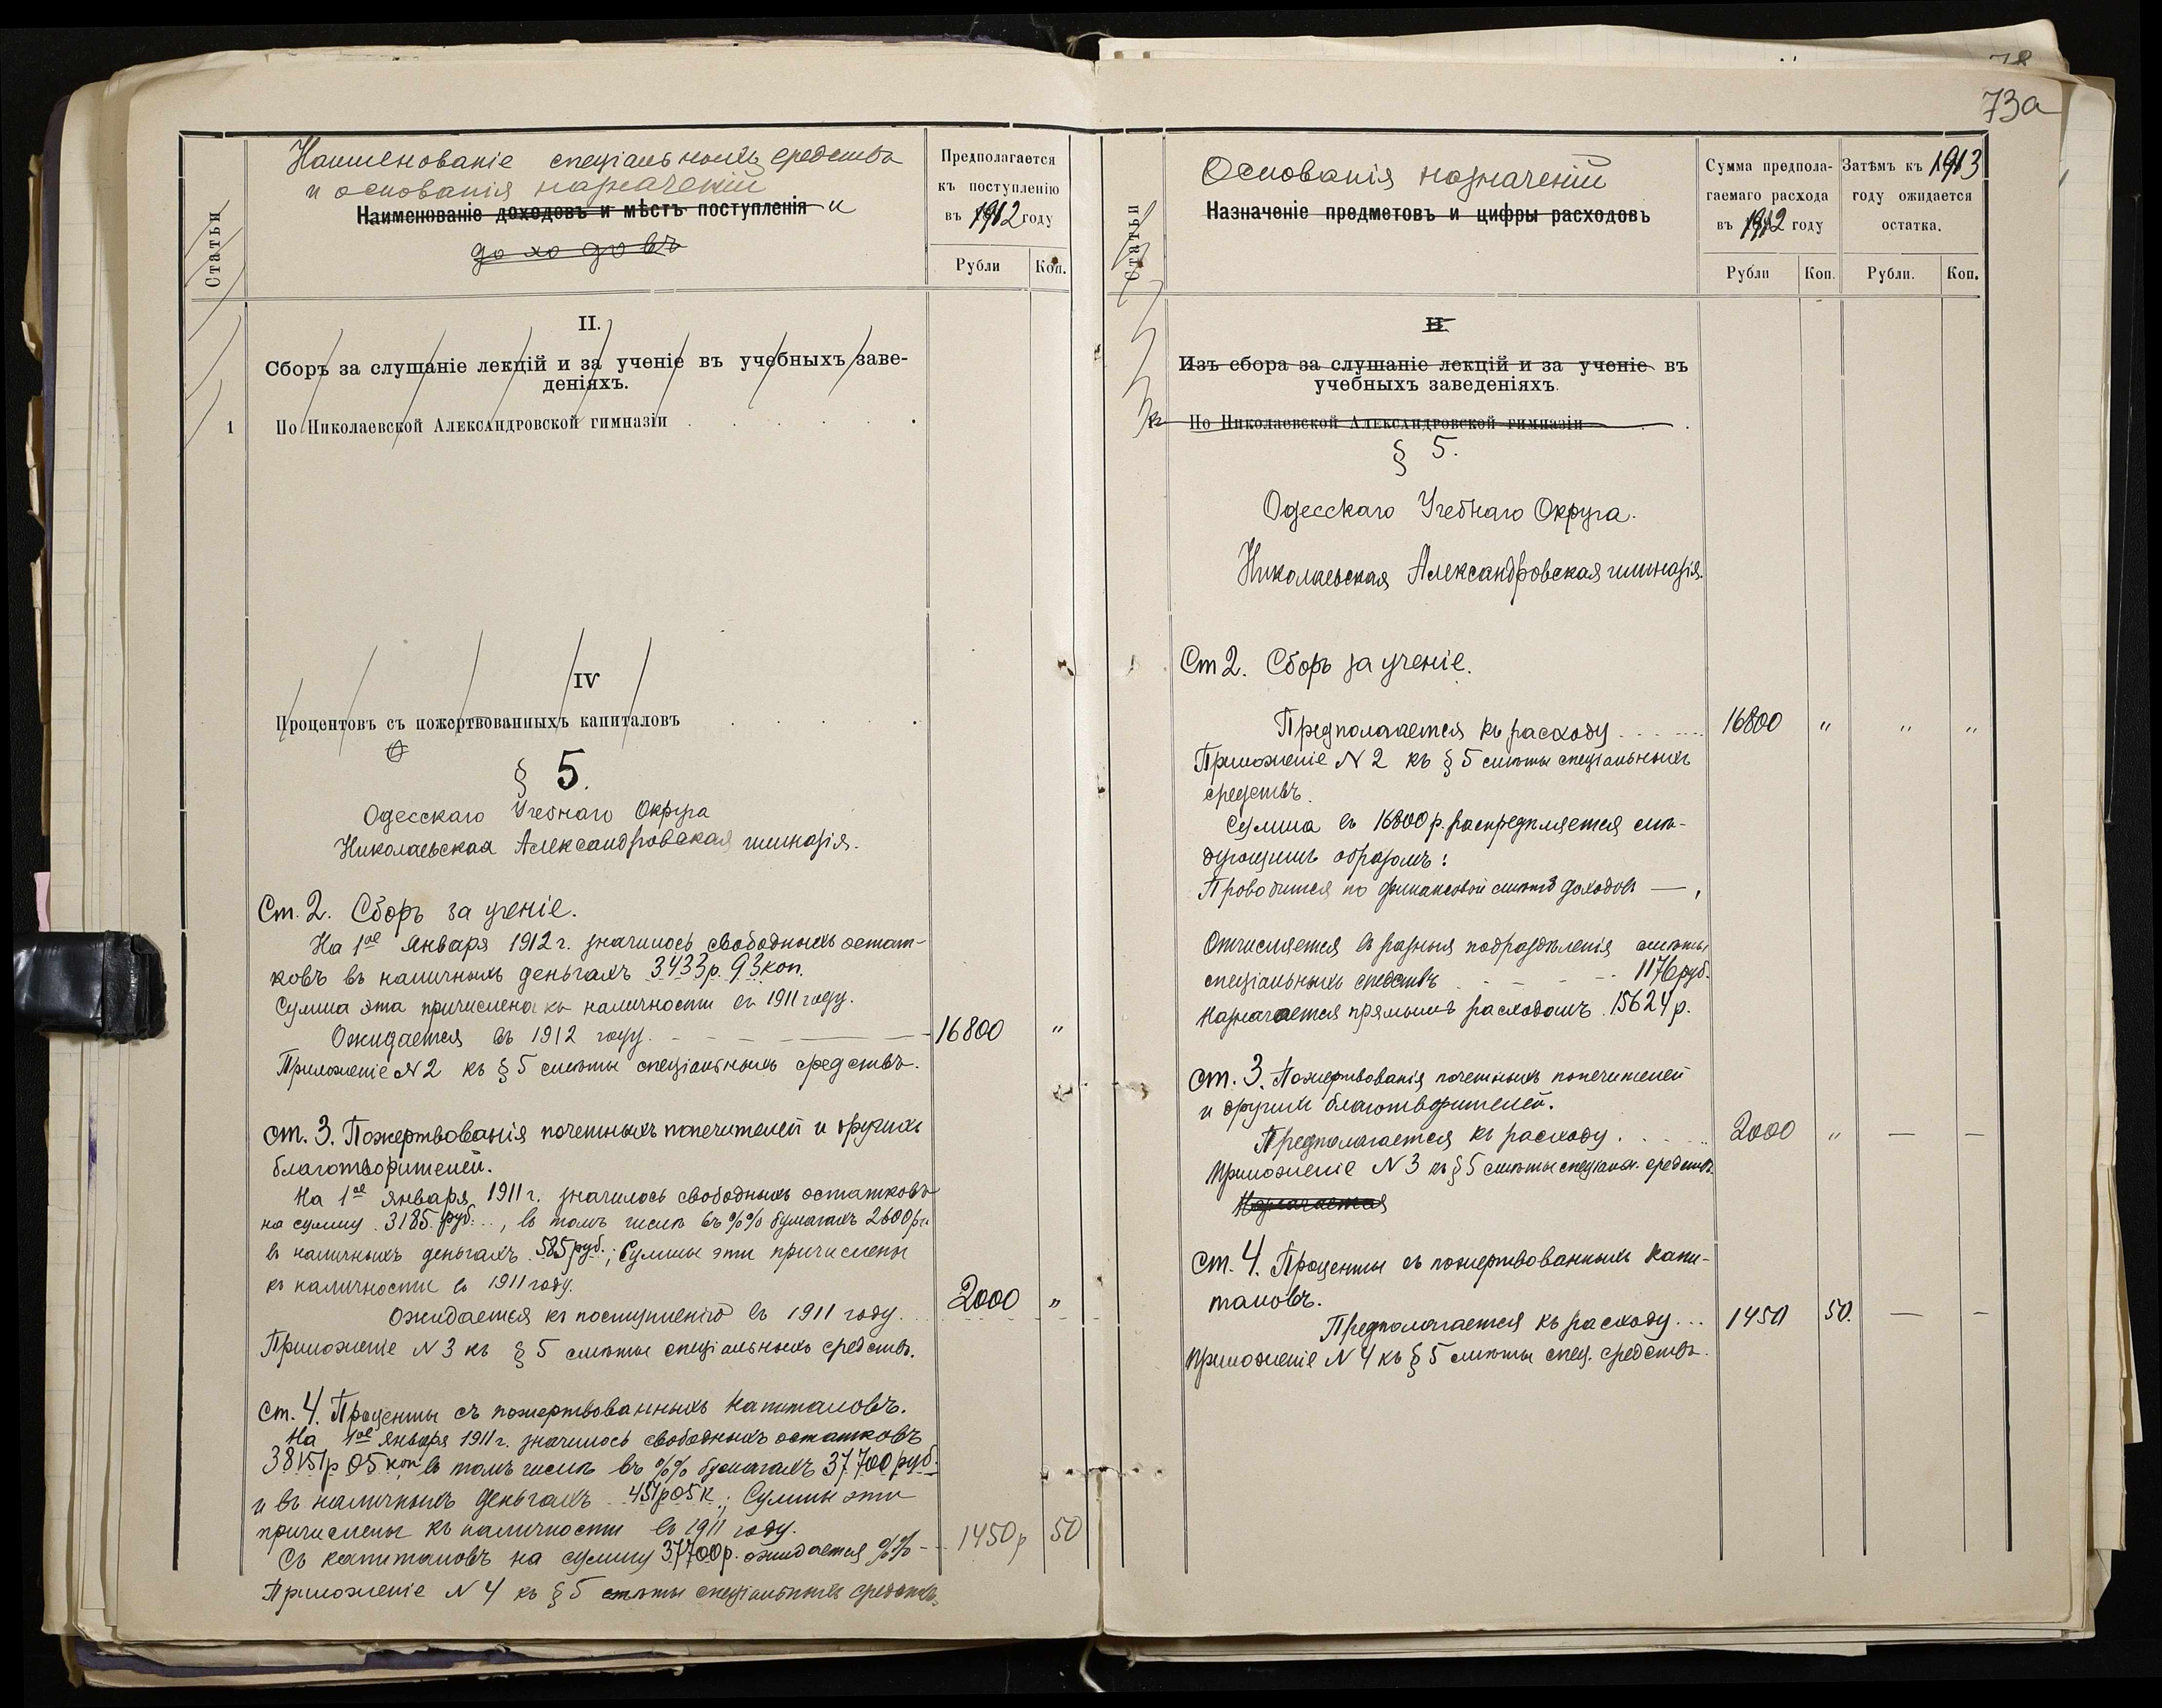 78
73а
Статьи
Наименованіе спеціальныхъ средствъ
и основанія назначеній
Наименованіе доходовъ и мѣстъ поступленія и
доходовъ
Предполагается
къ поступленію
въ 1912 году
Рубли Коп.
II.
Сборъ за слушаніе лекцій и за ученіе въ учебныхъ заве-
деніяхъ.
1 По Николаевской Александровской гимназіи
IV
Процентовъ съ пожертвованныхъ капиталовъ
§ 5.
Одесскаго Учебнаго Округа
Николаевская Александровская гимназія.
Ст. 2. Сборъ за ученіе.
На 1ое Января 1912 г. значилось свободныхъ остат-
ковъ въ наличныхъ деньгахъ 3433 р. 93 коп.
Сумма эта причислена къ наличности въ 1911 году.
Ожидается въ 1912 году. 16800 "
Приложеніе № 2 къ § 5 смѣты спеціальныхъ средствъ.
ст. 3. Пожертвованія почетныхъ попечителей и другихъ
благотворителей.
На 1ое января 1911 г. значилось свободныхъ остатковъ
на сумму 3185 руб..., въ томъ числѣ въ %% бумагахъ 2600 р. и
въ наличныхъ деньгахъ 585 руб.; Суммы эти причислены
къ наличности въ 1911 году.
Ожидается къ поступленію въ 1911 году. 2000 "
Приложеніе № 3 къ § 5 смѣты спеціальныхъ средствъ.
ст. 4. Проценты съ пожертвованныхъ капиталовъ.
На 1ое января 1911 г. значилось свободныхъ остатковъ
38151 р 05 коп въ томъ числѣ въ %% бумагахъ 37700 руб.
и въ наличныхъ деньгахъ 451 р 05 к.; Суммы эти
причислены къ наличности въ 1911 году.
Съ капиталовъ на сумму 37700 р. ожидается %% 1450 р 50
Приложеніе № 4 къ § 5 смѣты спеціальныхъ средствъ.
Статьи
Основанія назначеній
Назначеніе предметовъ и цифры расходовъ
Сумма предпола-
гаемаго расхода
въ 1912 году
Рубли Коп.
Затѣмъ къ 1913
году ожидается
остатка.
Рубли. Коп.
II.
Изъ сбора за слушаніе лекцій и за ученіе въ
учебныхъ заведеніяхъ.
По Николаевской Александровской гимназіи
§ 5.
Одесскаго Учебнаго Округа.
Николаевская Александровская гимназія.
Ст 2. Сборъ за ученіе.
Предполагается къ расходу 16800 " " "
Приложеніе № 2 къ § 5 смѣты спеціальныхъ
средствъ.
Сумма въ 16800 р. распредѣляется слѣ-
дующимъ образомъ:
Проводится по финансовой смѣтѣ доходовъ —,
Отчисляется въ разныя подраздѣленія смѣты
спеціальныхъ средствъ 1176 руб.
Назначается прямымъ расходомъ 15624 р.
ст. 3. Пожертвованія почетныхъ попечителей
и другихъ благотворителей.
Предполагается къ расходу 2000 " — —
Приложеніе № 3 къ § 5 смѣты спеціальн. средствъ.
Назначается
ст. 4. Проценты съ пожертвованныхъ капи-
таловъ.
Предполагается къ расходу... 1450 50. — —
Приложеніе № 4 къ § 5 смѣты спец. средствъ.